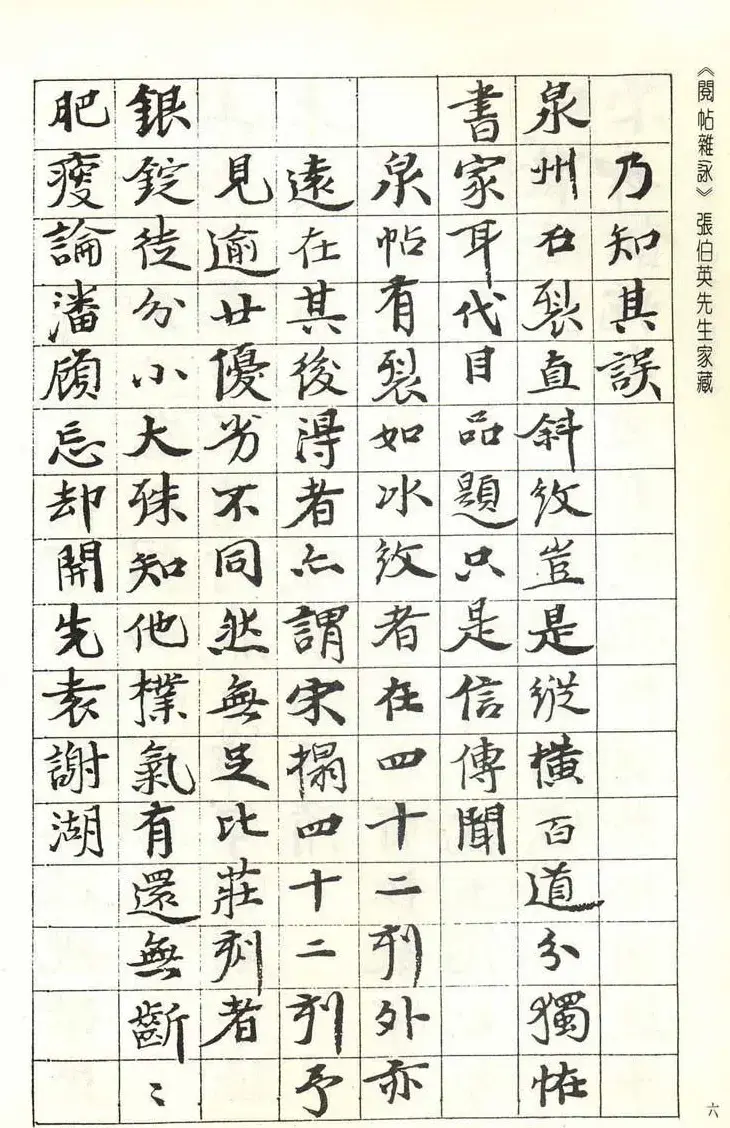 《閱帖雜詠》 張伯英先生家藏
乃知其誤
泉州石裂直斜紋豈是縱橫百道分獨怪
書家耳代目品題只是信傳聞
泉帖有裂如冰紋者在四十二列外亦
遠在其後得者亦謂宋搨四十二列予
見逾廿優劣不同然無足比莊刻者
銀錠徒分小大殊知他樸氣有還無齗〻
肥瘦論潘顧忘却開先袁謝湖
六